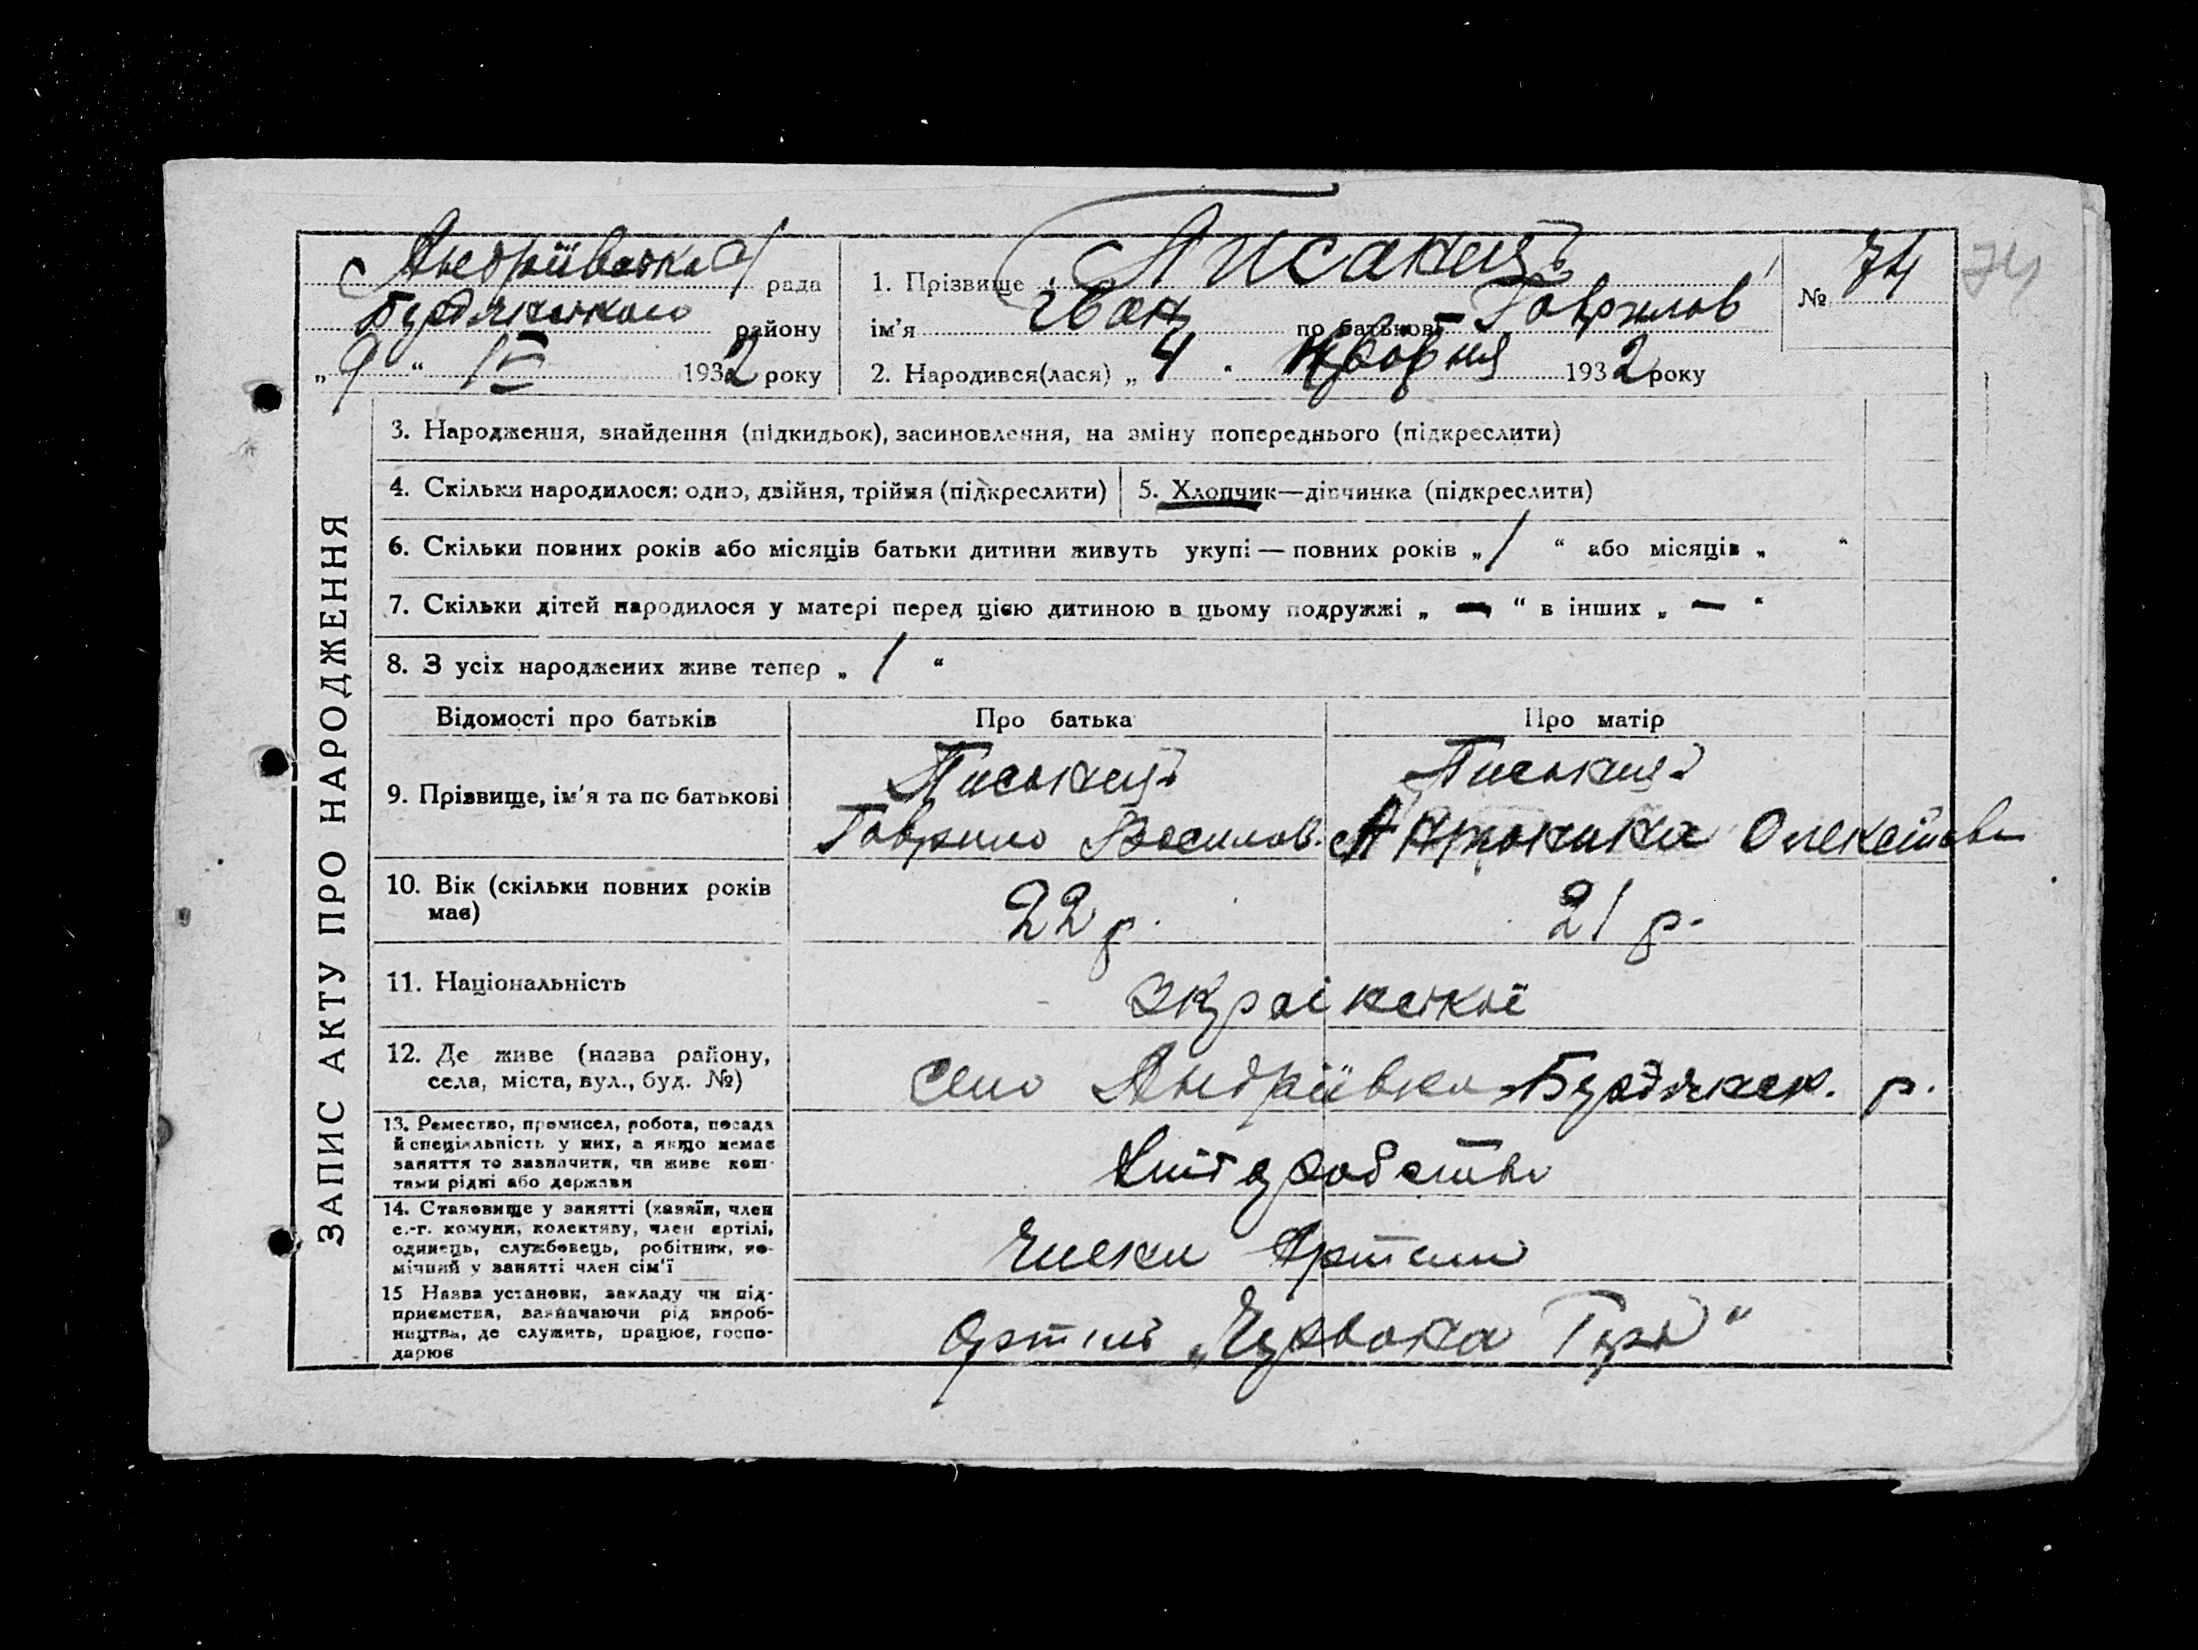 Андріївська рада
Бердянського району
„ 9 “ IV 1932 року
1. Прізвище Писанець
ім'я Іван по батькові Гаврилов
2. Народився(лася) „ 4 “ Квітня 1932 року
№ 74
74
ЗАПИС АКТУ ПРО НАРОДЖЕННЯ
3. Народження, знайдення (підкидьок), засиновлення, на зміну попереднього (підкреслити)
4. Скільки народилося: одно, двійня, трійня (підкреслити)
5. Хлопчик—дівчинка (підкреслити)
6. Скільки повних років або місяців батьки дитини живуть укупі — повних років „ 1 “ або місяців „ “
7. Скільки дітей народилося у матері перед цією дитиною в цьому подружжі „ — “ в інших „ — “
8. З усіх народжених живе тепер „ 1 “
Відомості про батьків
Про батька
Про матір
9. Прізвище, ім'я та по батькові
Писанець
Гаврило Василов.
Писанець
Олексіївн
10. Вік (скільки повних років
має)
22 р.
21 р.
11. Національність
12. Де живе (назва району,
села, міста, вул., буд. №)
село Андріївка Бердянск. р.
13. Ремество, промисел, робота, посада
й спеціяльність у них, а якщо немає
заняття то зазначити, чи живе кош-
тами рідні або держави
14. Становище у занятті (хазяїн, член
с.-г. комуни, колективу, член артілі,
одинець, службовець, робітник, по-
мічний у занятті член сім'ї
Члени Артели
15 Назва установи, закладу чи під-
приємства, зазначаючи рід вироб-
ництва, де служить, працює, госпо-
дарює
Артиль